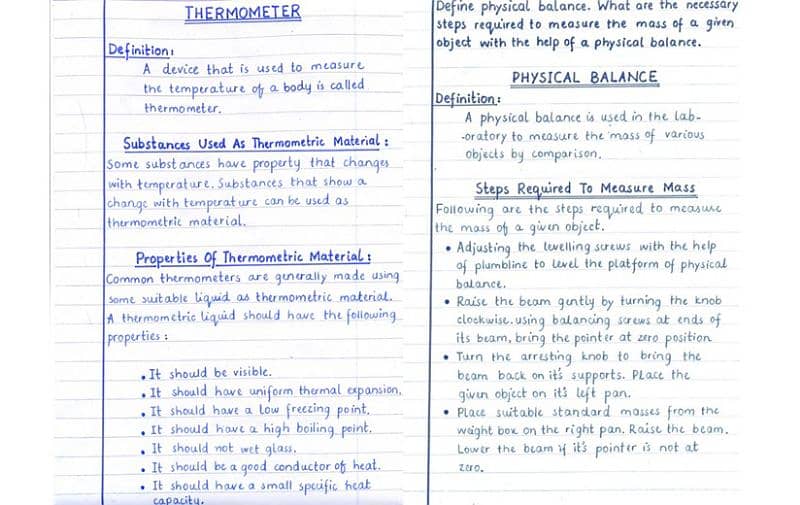 THERMOMETER
Definition:
A device that is used to measure
the temperature of a body is called
thermometer.
Substances Used As Thermometric Material:
Some substances have property that changes
with temperature. Substances that show a
change with temperature can be used as
thermometric material.
Properties Of Thermometric Material:
Common thermometers are generally made using
some suitable liquid as thermometric material.
A thermometric liquid should have the following
properties:
• It should be visible.
• It should have uniform thermal expansion.
• It should have a low freezing point.
• It should have a high boiling point.
• It should not wet glass.
• It should be a good conductor of heat.
• It should have a small specific heat
capacity.
Define physical balance. What are the necessary
steps required to measure the mass of a given
object with the help of a physical balance.
PHYSICAL BALANCE
Definition:
A physical balance is used in the lab-
-oratory to measure the mass of various
objects by comparison.
Steps Required To Measure Mass
Following are the steps required to measure
the mass of a given object.
• Adjusting the levelling screws with the help
of plumbline to level the platform of physical
balance.
• Raise the beam gently by turning the knob
clockwise. using balancing screws at ends of
its beam, bring the pointer at zero position
• Turn the arresting knob to bring the
beam back on it's supports. Place the
given object on it's left pan.
• Place suitable standard masses from the
weight box on the right pan. Raise the beam.
Lower the beam if it's pointer is not at
zero.